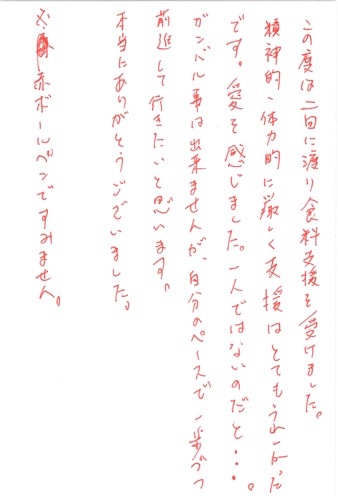 この度は二回に渡り食料支援を受けました。
精神的、体力的に厳しく支援はとてもうれしかった
です。愛を感じました。一人ではないのだと・・・。
ガンバル事は出来ませんが、自分のペースで一歩づつ
前進して行きたいと思います。
本当にありがとうございました。
※赤ボールペンですみません。